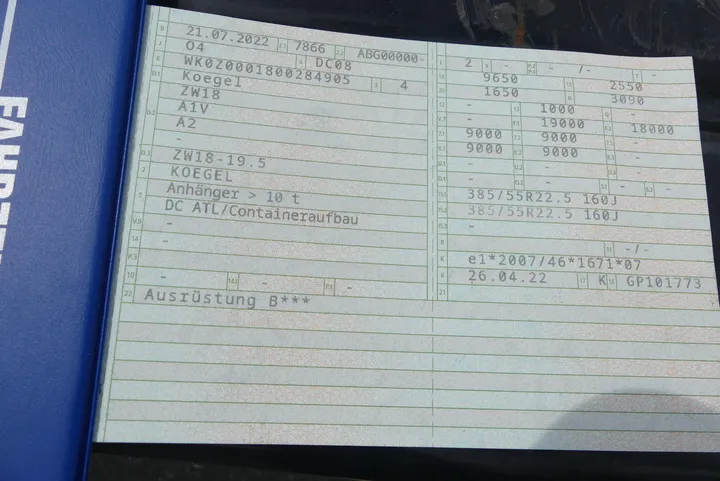 21.07.2022 7866 ABG00000-
04 DC08
WK0Z0001800284905 4
Koegel
ZW18
A1V
A2
-
ZW18-19.5
KOEGEL
Anhänger > 10 t
DC ATL/Containeraufbau
-
-
- - -
22 Ausrüstung B***
2 - - -/- -
9650 2550
1650 3090
- 1000 -
- 19000 18000
9000 9000 -
9000 9000 -
- - -
- - - -
385/55R22.5 160J
385/55R22.5 160J
-
-/-
K e1*2007/46*1671*07
6 26.04.22 17 K 16 GP101773
21